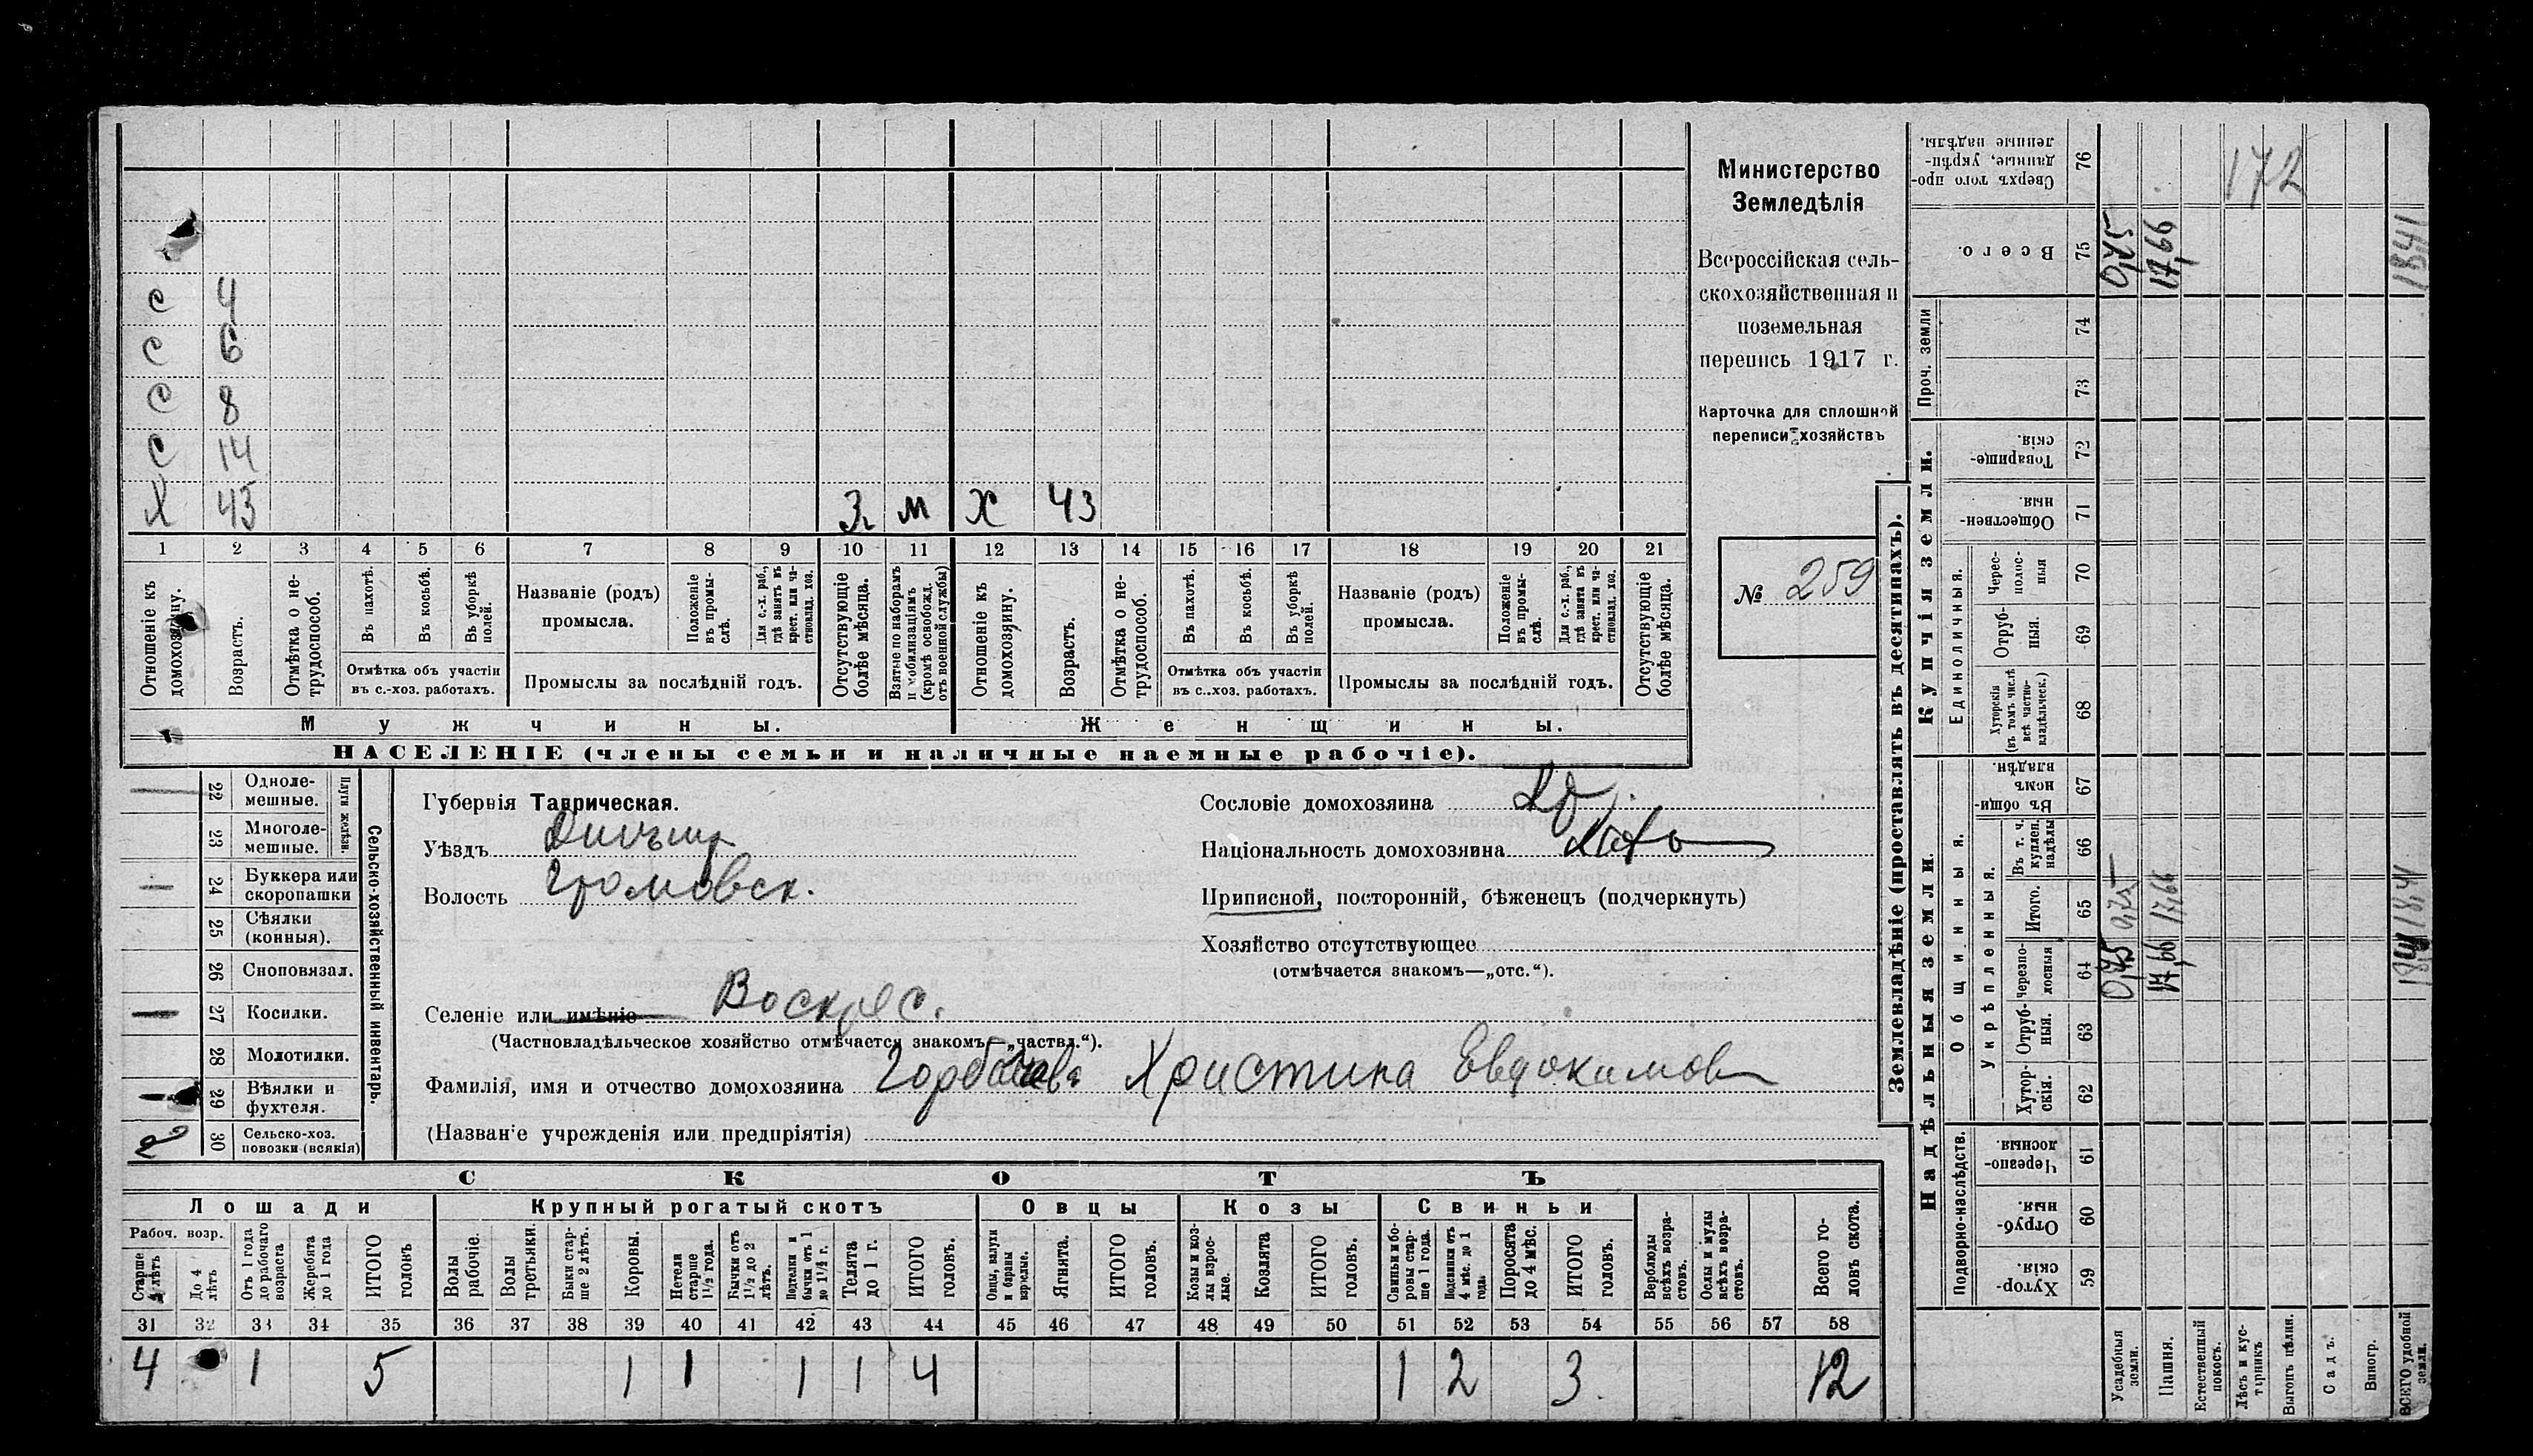 Министерство
Земледѣлія
Всероссійская сель-
скохозяйственная и
поземельная
перепись 1917 г.
Карточка для сплошной
переписи хозяйствъ
№ 259
С 4
С 6
С 8
С 14
Х 43 3 м Х 43
1 2 3 4 5 6 7 8 9 10 11 12 13 14 15 16 17 18 19 20 21
Отношеніе къ домохозяину.
Возрастъ.
Отмѣтка о не-трудоспособ.
Въ пахотѣ.
Въ косьбѣ.
Въ уборкѣ полей.
Отмѣтка объ участіи
въ с.-хоз. работахъ.
Названіе (родъ)
промысла.
Положеніе въ промы-слѣ.
Для с.-х. раб., гдѣ занятъ въ крест. или ча-стновлад. хоз.
Промыслы за послѣдній годъ.
Отсутствующіе болѣе мѣсяца.
Взятые по наборамъ и мобилизаціямъ (кромѣ освобожд. отъ военной службы)
Отношеніе къ домохозяину.
Возрастъ.
Отмѣтка о не-трудоспособ.
Въ пахотѣ.
Въ косьбѣ.
Въ уборкѣ полей.
Отмѣтка объ участіи
въ с.-хоз. работахъ.
Названіе (родъ)
промысла.
Положеніе въ промы-слѣ.
Для с.-х. раб., гдѣ занята въ крест. или ча-стновлад. хоз.
Промыслы за послѣдній годъ.
Отсутствующіе болѣе мѣсяца.
Мужчины. Женщины.
НАСЕЛЕНІЕ (члены семьи и наличные наемные рабочіе).
Сельско-хозяйственный инвентарь.
Плуги желѣзн.
22 Одноле-мешные.
23 Многоле-мешные.
24 Буккера или скоропашки
25 Сѣялки (конныя).
26 Сноповязал.
27 Косилки.
28 Молотилки.
29 Вѣялки и фухтеля.
30 Сельско-хоз. повозки (всякія) 2
Губернія Таврическая.
Уѣздъ
Волость Громовск.
Селеніе или имѣніе Воскрес.
(Частновладѣльческое хозяйство отмѣчается знакомъ—„частвл.“).
Фамилія, имя и отчество домохозяина Христина Евдокимов
(Названіе учрежденія или предпріятія)
Сословіе домохозяина
Національность домохозяина
Приписной, посторонній, бѣженецъ (подчеркнуть)
Хозяйство отсутствующее
(отмѣчается знакомъ—„отс.“).
СКОТЪ
Лошади Крупный рогатый скотъ Овцы Козы Свиньи
Рабоч. возр.
Старше 4 лѣтъ
До 4 лѣтъ
Отъ 1 года до рабочаго возраста
Жеребята до 1 года
ИТОГО головъ
Волы рабочіе.
Волы третьяки.
Быки стар-ше 2 лѣтъ.
Коровы.
Нетели старше 1½ года.
Бычки отъ 1½ до 2 лѣтъ.
Подтелки и бычки отъ 1 до 1½ г.
Телята до 1 г.
ИТОГО головъ.
Овцы, валухи и бараны взрослые.
Ягнята.
ИТОГО головъ.
Козы и коз-лы взрос-лые.
Козлята
ИТОГО головъ.
Свиньи и бо-ровы стар-ше 1 года.
Подсвинки отъ 4 мѣс. до 1 года.
Поросята до 4 мѣс.
ИТОГО головъ.
Верблюды всѣхъ возра-стовъ.
Ослы и мулы всѣхъ возра-стовъ.
Всего го-ловъ скота.
31 32 33 34 35 36 37 38 39 40 41 42 43 44 45 46 47 48 49 50 51 52 53 54 55 56 57 58
4 1 5 1 1 1 1 4 1 2 3 12
Землевладѣніе (проставлять въ десятинахъ).
Купчія земли.
Надѣльныя земли.
Сверхъ того про-данные, укрѣп-ленные надѣлы. 76
172
Всего. 75 17,66
Проч. земли 74
73
Товарище-скія. 72
Обществен-ныя. 71
Единоличныя.
Черес-полос-ныя 70
Отруб-ныя. 69
Хуторскія (въ томъ числѣ всѣ частно-владѣльческ.) 68
Общинныя.
Въ общи-номъ владѣн. 67
Укрѣпленныя.
Въ т. ч. куплен. надѣлы 66
Итого. 65 17,66
Черезпо-лосныя 64 17,66
Отруб-ныя. 63
Хутор-скія. 62
Подворно-наслѣдств.
Черезпо-лосныя 61
Отруб-ныя. 60
Хутор-скія. 59
Усадебныя земли.
Пашня.
Естественный покосъ.
Лѣсъ и кус-тарникъ
Выгонъ цѣлин.
Садъ.
Виногр.
ВСЕГО удобной земли.